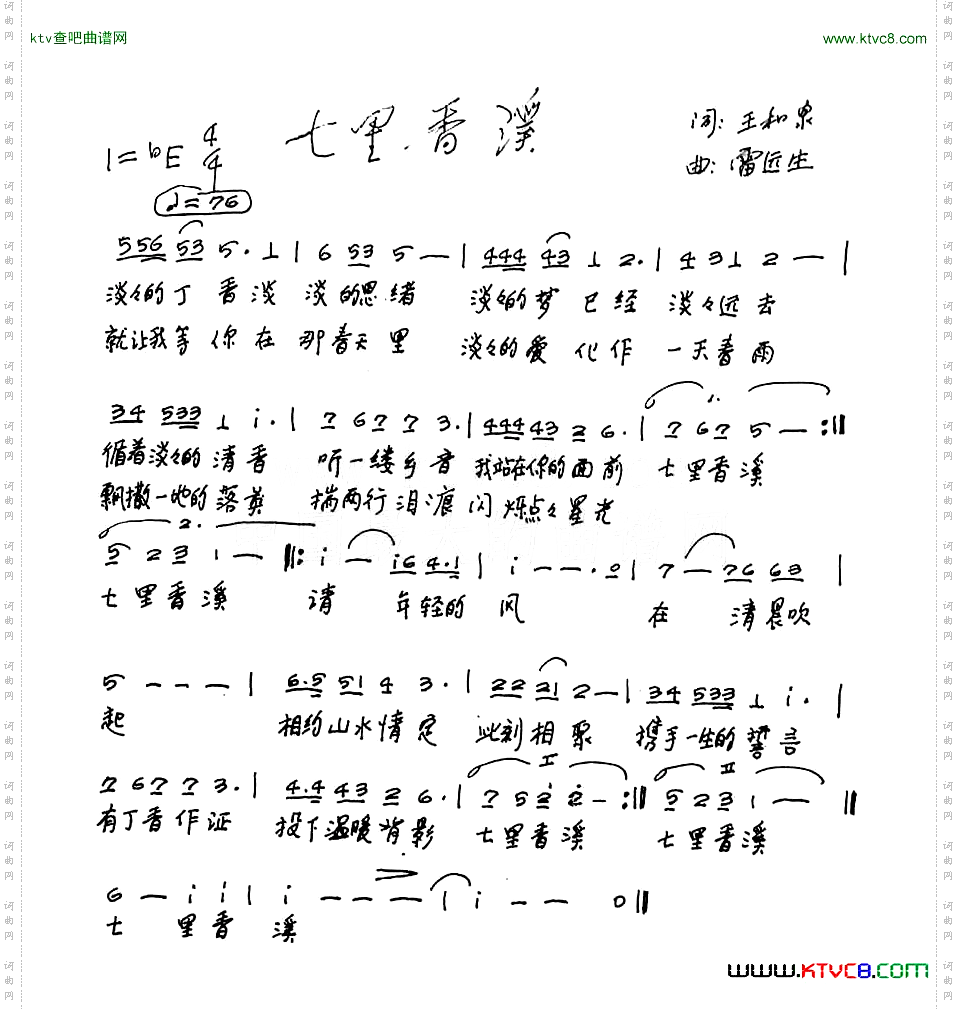 ktv查吧曲谱网 www.ktvc8.com
七里香溪
词: 王和泉
1=bE 4/4
曲: 雷远生
♩=76
556 53 5. 1 | 6 53 5 — | 444 43 1 2. | 4 3 1 2 — |
淡々的丁香淡 淡的思绪 淡々的梦已经 淡々远去
就让我等你在那春天里 淡々的爱化作一天春雨
34 533 1 i. | 7 67 7 3. | 444 43 2 6. | 1. 7 67 5 — :||
循着淡々的清香 听一缕乡音 我站在你的面前 七里香溪
飘撒一地的落英 揣两行泪痕 闪烁点々星光
2.
5 2 3 1 — ||: i — i6 4.1 | i — — . 0 | 7 — 76 63 |
七里香溪 请年轻的风 在清晨吹
5 — — — | 6.5 51 4 3. | 22 21 2 — | 34 533 1 i. |
起 相约山水情定 此刻相聚 携手一生的誓言
I II
7 67 7 3. | 4.4 43 2 6. | 7 5 2 2 — :|| 5 2 3 1 — ||
有丁香作证 投下温暖背影 七里香溪 七里香溪
6 — i i | i — — — | i — — 0 ||
七里香溪
www.KTVC8.com
词曲网